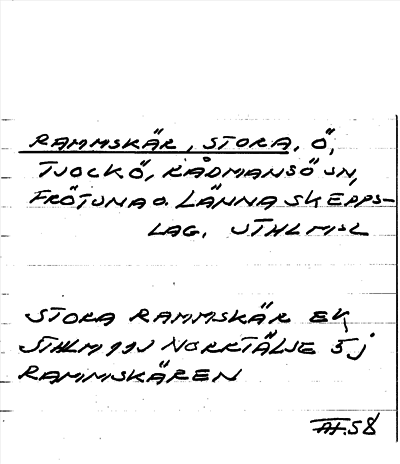 RAMMSKÄR, STORA, Ö,
TJOCKÖ, RÅDMANSÖ SN,
FRÖTUNA O. LÄNNA SKEPPS-
LAG. STHLMS L
STORA RAMMSKÄR EK
STHLM 11J NORRTÄLJE 5j
RAMMSKÄREN
AF.58